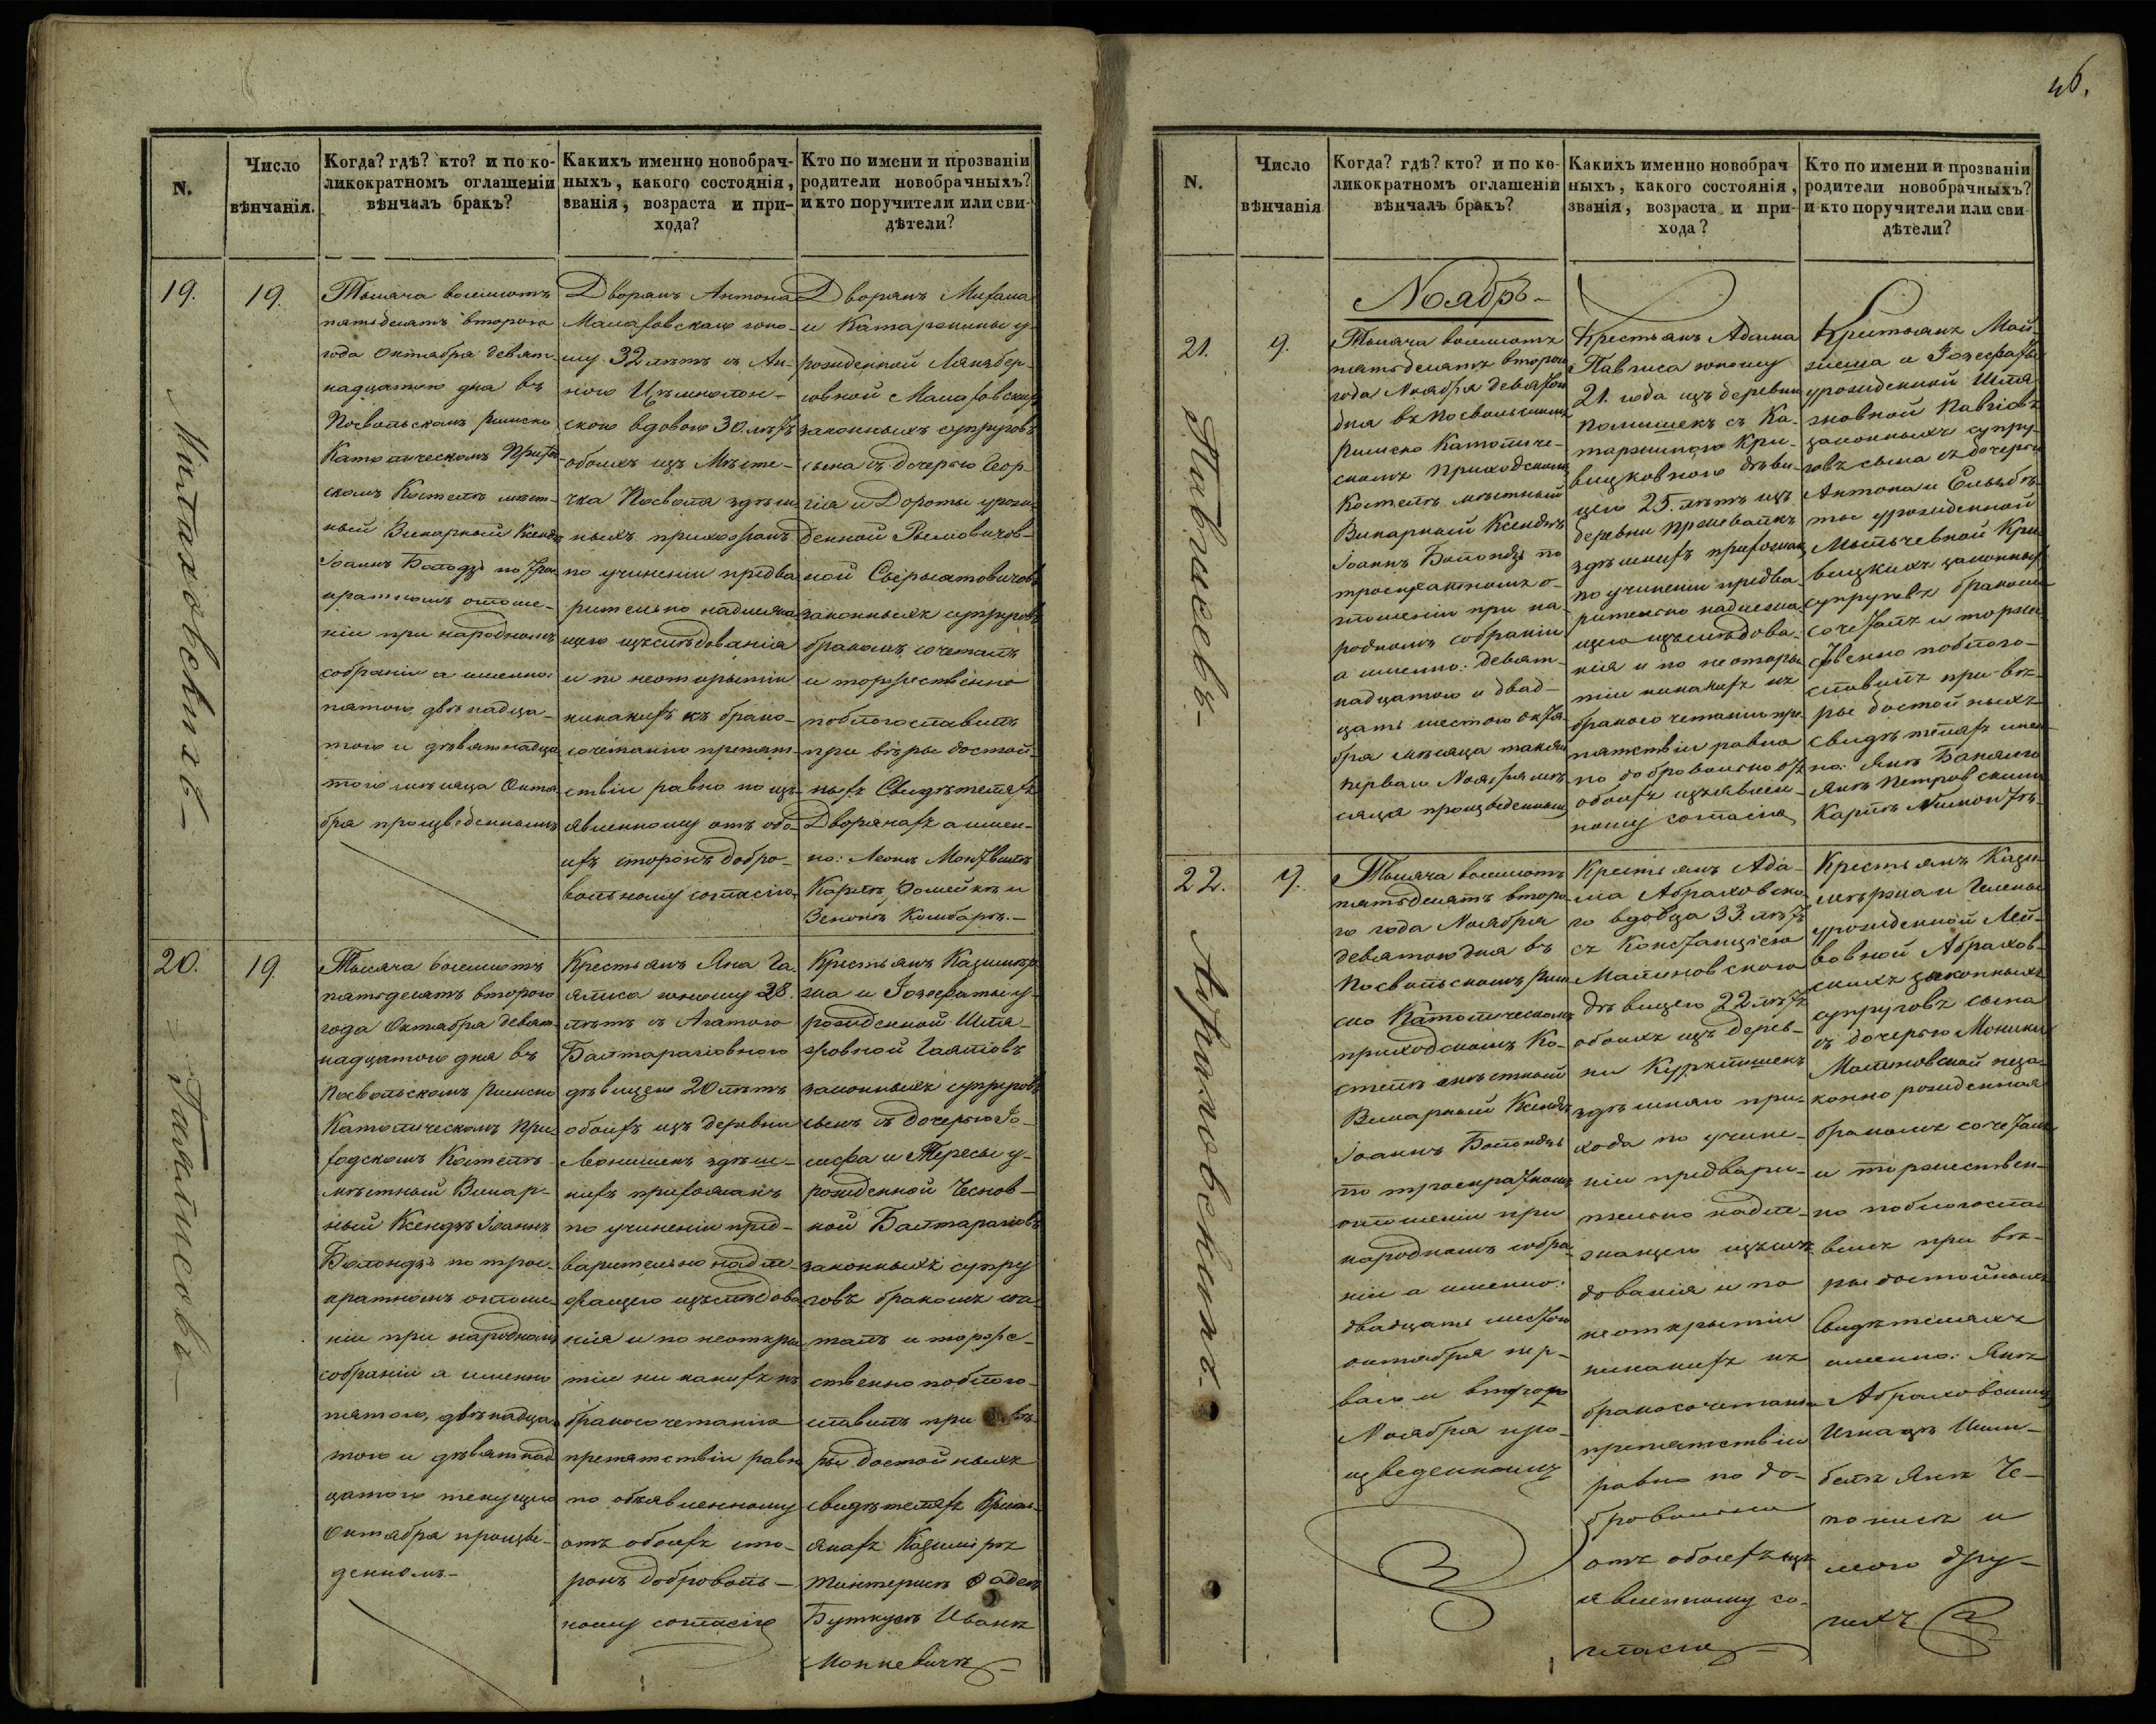 46.
N.
Число
вѣнчанія.
Когда? гдѣ? кто? и по ко-
ликократномъ оглашеніи
вѣнчалъ бракъ?
Какихъ именно новобрач-
ныхъ, какого состоянія,
званія, возраста и при-
хода?
Кто по имени и прозваніи
родители новобрачныхъ?
и кто поручители или сви-
дѣтели?
19.
19.
Тысяча восемьсотъ
пятьдесятъ втораго
года Октября девят-
надцатого дня въ
Посвольскомъ Римско
Католическомъ Прихо-
скомъ Костелѣ мѣст-
ный Викарный Ксендзъ
Іоаннъ по трое-
кратномъ оглаше-
ніи при народномъ
собраніи а именно:
пятого, двѣнадца-
того и девятнадца
того мѣсяца Октя-
бря произведенномъ
Дворянъ Антона
юно-
шу 32 лѣтъ съ Ан-
ною
скою вдовою 30 лѣтъ
обоихъ изъ Мѣсте-
чка Посволя здѣш
ныхъ прихожанъ
по учиненіи предва
рительно надлежа
щего изслѣдованія
и по неоткрытіи
никакихъ къ брако-
сочетанію препят-
ствіи равно по изъ-
явленному отъ обо-
ихъ сторонъ добро-
вольному согласію
Дворянъ Михаила
и Катаржины у-
рожденной
ковной
законныхъ супруговъ
сына съ дочерью Геор-
гія и Дороты урож
денной
ной
законныхъ супруговъ
бракомъ сочеталъ
и торжественно
поблогославилъ
при вѣры достой-
ныхъ Свидѣтеляхъ
Дворянахъ а имен-
но: Леонѣ
Каролѣ и
Зенонѣ
20.
19.
Тысяча восемьсотъ
пятьдесятъ второго
года Октября девят-
надцатого дня въ
Посвольскомъ Римско
Католическомъ При
ходскомъ Костелѣ
мѣстный Викар-
ный Ксендзъ Іоаннъ
по трое-
кратномъ оглаше-
ніи при народномъ
собраніи а именно
пятого, двѣнадца-
того и девятнад
цатого текущего
Октября произве-
денномъ-
Крестьянъ Яна Га-
ялиса юношу 28.
лѣтъ съ Агатою
дѣвицею 20 лѣтъ
обоихъ изъ деревни
здѣш-
нихъ прихожанъ
по учиненіи пред-
варительно надле-
жащего изслѣдова
нія и по неоткры
тіи ни какихъ къ
бракосочетанію
препятствіи равно
по объявленному
отъ обоихъ сто-
ронъ доброволь-
ному согласію
Крестьянъ Казимѣр-
жа и Іозефаты у-
рожденной
Гаялісовъ
законныхъ супруговъ
сынъ съ дочерью Іо-
сифа и Тересы у-
рожденной Чеснов-
ной
законныхъ супру
говъ бракомъ соче
талъ и торже-
ственно поблого-
славилъ при вѣ-
ры достойныхъ
свидѣтеляхъ Кресть-
янахъ Казимірѣ
Буткусѣ Иванѣ
N.
Число
вѣнчанія
Когда? гдѣ? кто? и по ко-
ликократномъ оглашеніи
вѣнчалъ бракъ?
Какихъ именно новобрач
ныхъ, какого состоянія,
званія, возраста и при-
хода?
Кто по имени и прозваніи
родители новобрачныхъ?
и кто поручители или сви-
дѣтели?
Ноябрь-
21.
9.
Тысяча восемьсотъ
пятьдесятъ второго
года Ноября девятого
дня въ Посвольскомъ
Римско Католиче-
скомъ Приходскомъ
Костелѣ мѣстный
Викарный Ксендзъ
Іоаннъ по
троекратномъ о-
глашеніи при на-
родномъ собраніи
а именно: девят-
надцатого и двад-
цать шестого Октя-
бря мѣсяца также
перваго Ноября мѣ-
сяца произведенномъ
Крестьянъ Адама
Павлиса юношу
21. года изъ деревни
съ Ка-
таржиною Кри-
вицковною дѣви-
цею 25. лѣтъ изъ
деревни
здѣшнихъ прихожан
по учиненіи предва-
рительно надлежа-
щего изслѣдова-
нія и по неоткры
тіи никакихъ къ
бракосочетанію пре-
пятствіи равно
по добровольно отъ
обоихъ изъявлен-
ному согласію
Крестьянъ
и Іозефаты
урожденной
Павлісовъ
законныхъ супру-
говъ сына съ дочерью
Антона и Ельзбѣ-
ты урожденной
Кри
вицкихъ законныхъ
супруговъ бракомъ
сочеталъ и торже
ственно поблого-
славилъ при вѣ-
ры достойныхъ
Свидѣтеляхъ имен
но: Янѣ
Янѣ Петровскимъ
Каролѣ
22.
9.
Тысяча восемьсотъ
пятьдесятъ второ-
го года Ноября
девятого дня въ
Посвольскомъ Рим
ско Католическомъ
приходскомъ Ко-
стелѣ мѣстный
Викарный Ксендзъ
Іоаннъ
по троекратномъ
оглашеніи при
народномъ собра-
ніи а именно:
двадцать шестого
октября пер-
ваго и второго
Ноября про-
изведенномъ
Крестьянъ Ада-
ма Абраховско
го вдовца 33 лѣтъ
съ Констанціею
Малиновскою
дѣвицею 22 лѣтъ
обоихъ изъ дерев-
ни
здѣшняго при-
хода по учине-
ніи предвари-
тельно надле-
жащего изслѣ-
дованія и по
неоткрытіи
никакихъ къ
бракосочетанію
препятствіи
равно по до-
бровольно
отъ обоихъ изъ
явленному со-
гласію
Крестьянъ Кази-
мѣржа и Гелены
урожденной Лей-
вовной Абрахов-
скихъ законныхъ
супруговъ сына
съ дочерью Моники
Малиновской неза-
конно рожденная
бракомъ сочеталъ
и торжествен-
но поблогосла-
вилъ при вѣ-
ры достойныхъ
Свидѣтеляхъ
именно: Янѣ
Абраховскимъ
Игнацѣ
Янѣ Че-
и
много дру-
гихъ
Михаловскихъ-
Гаялисовъ-
Павлисовъ-
Абраховскихъ.